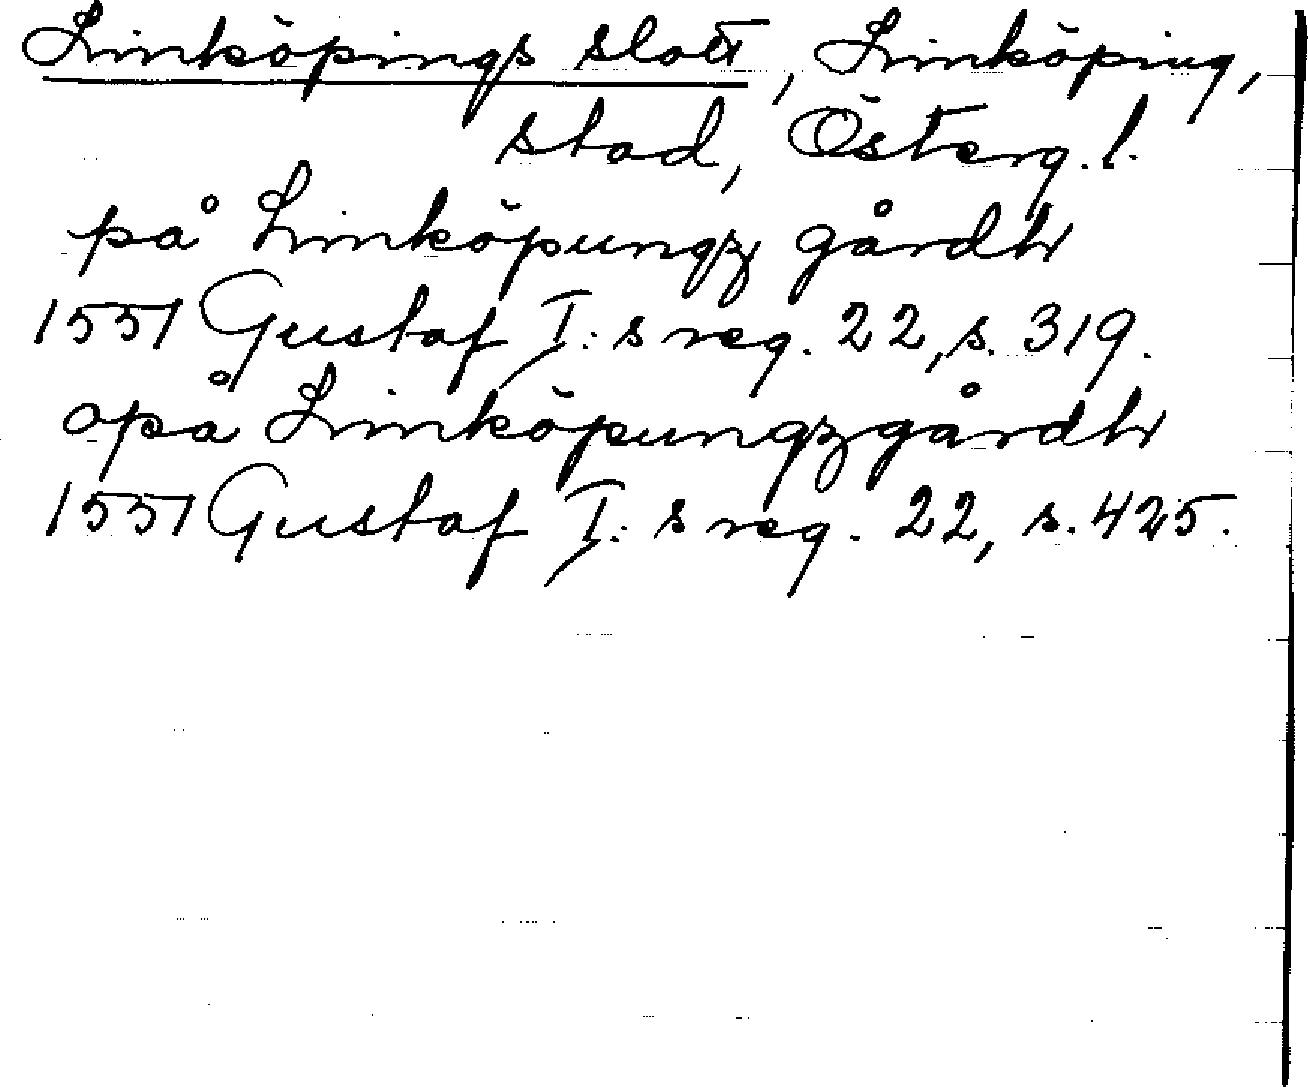 Linköpings slott, Linköping,
stad, Österg. l.
på Linköpungz gårdh
1551 Gustaf I: s reg. 22, s. 319.
opå Linköpungzgårdh
1551 Gustaf I: s reg. 22, s. 425.